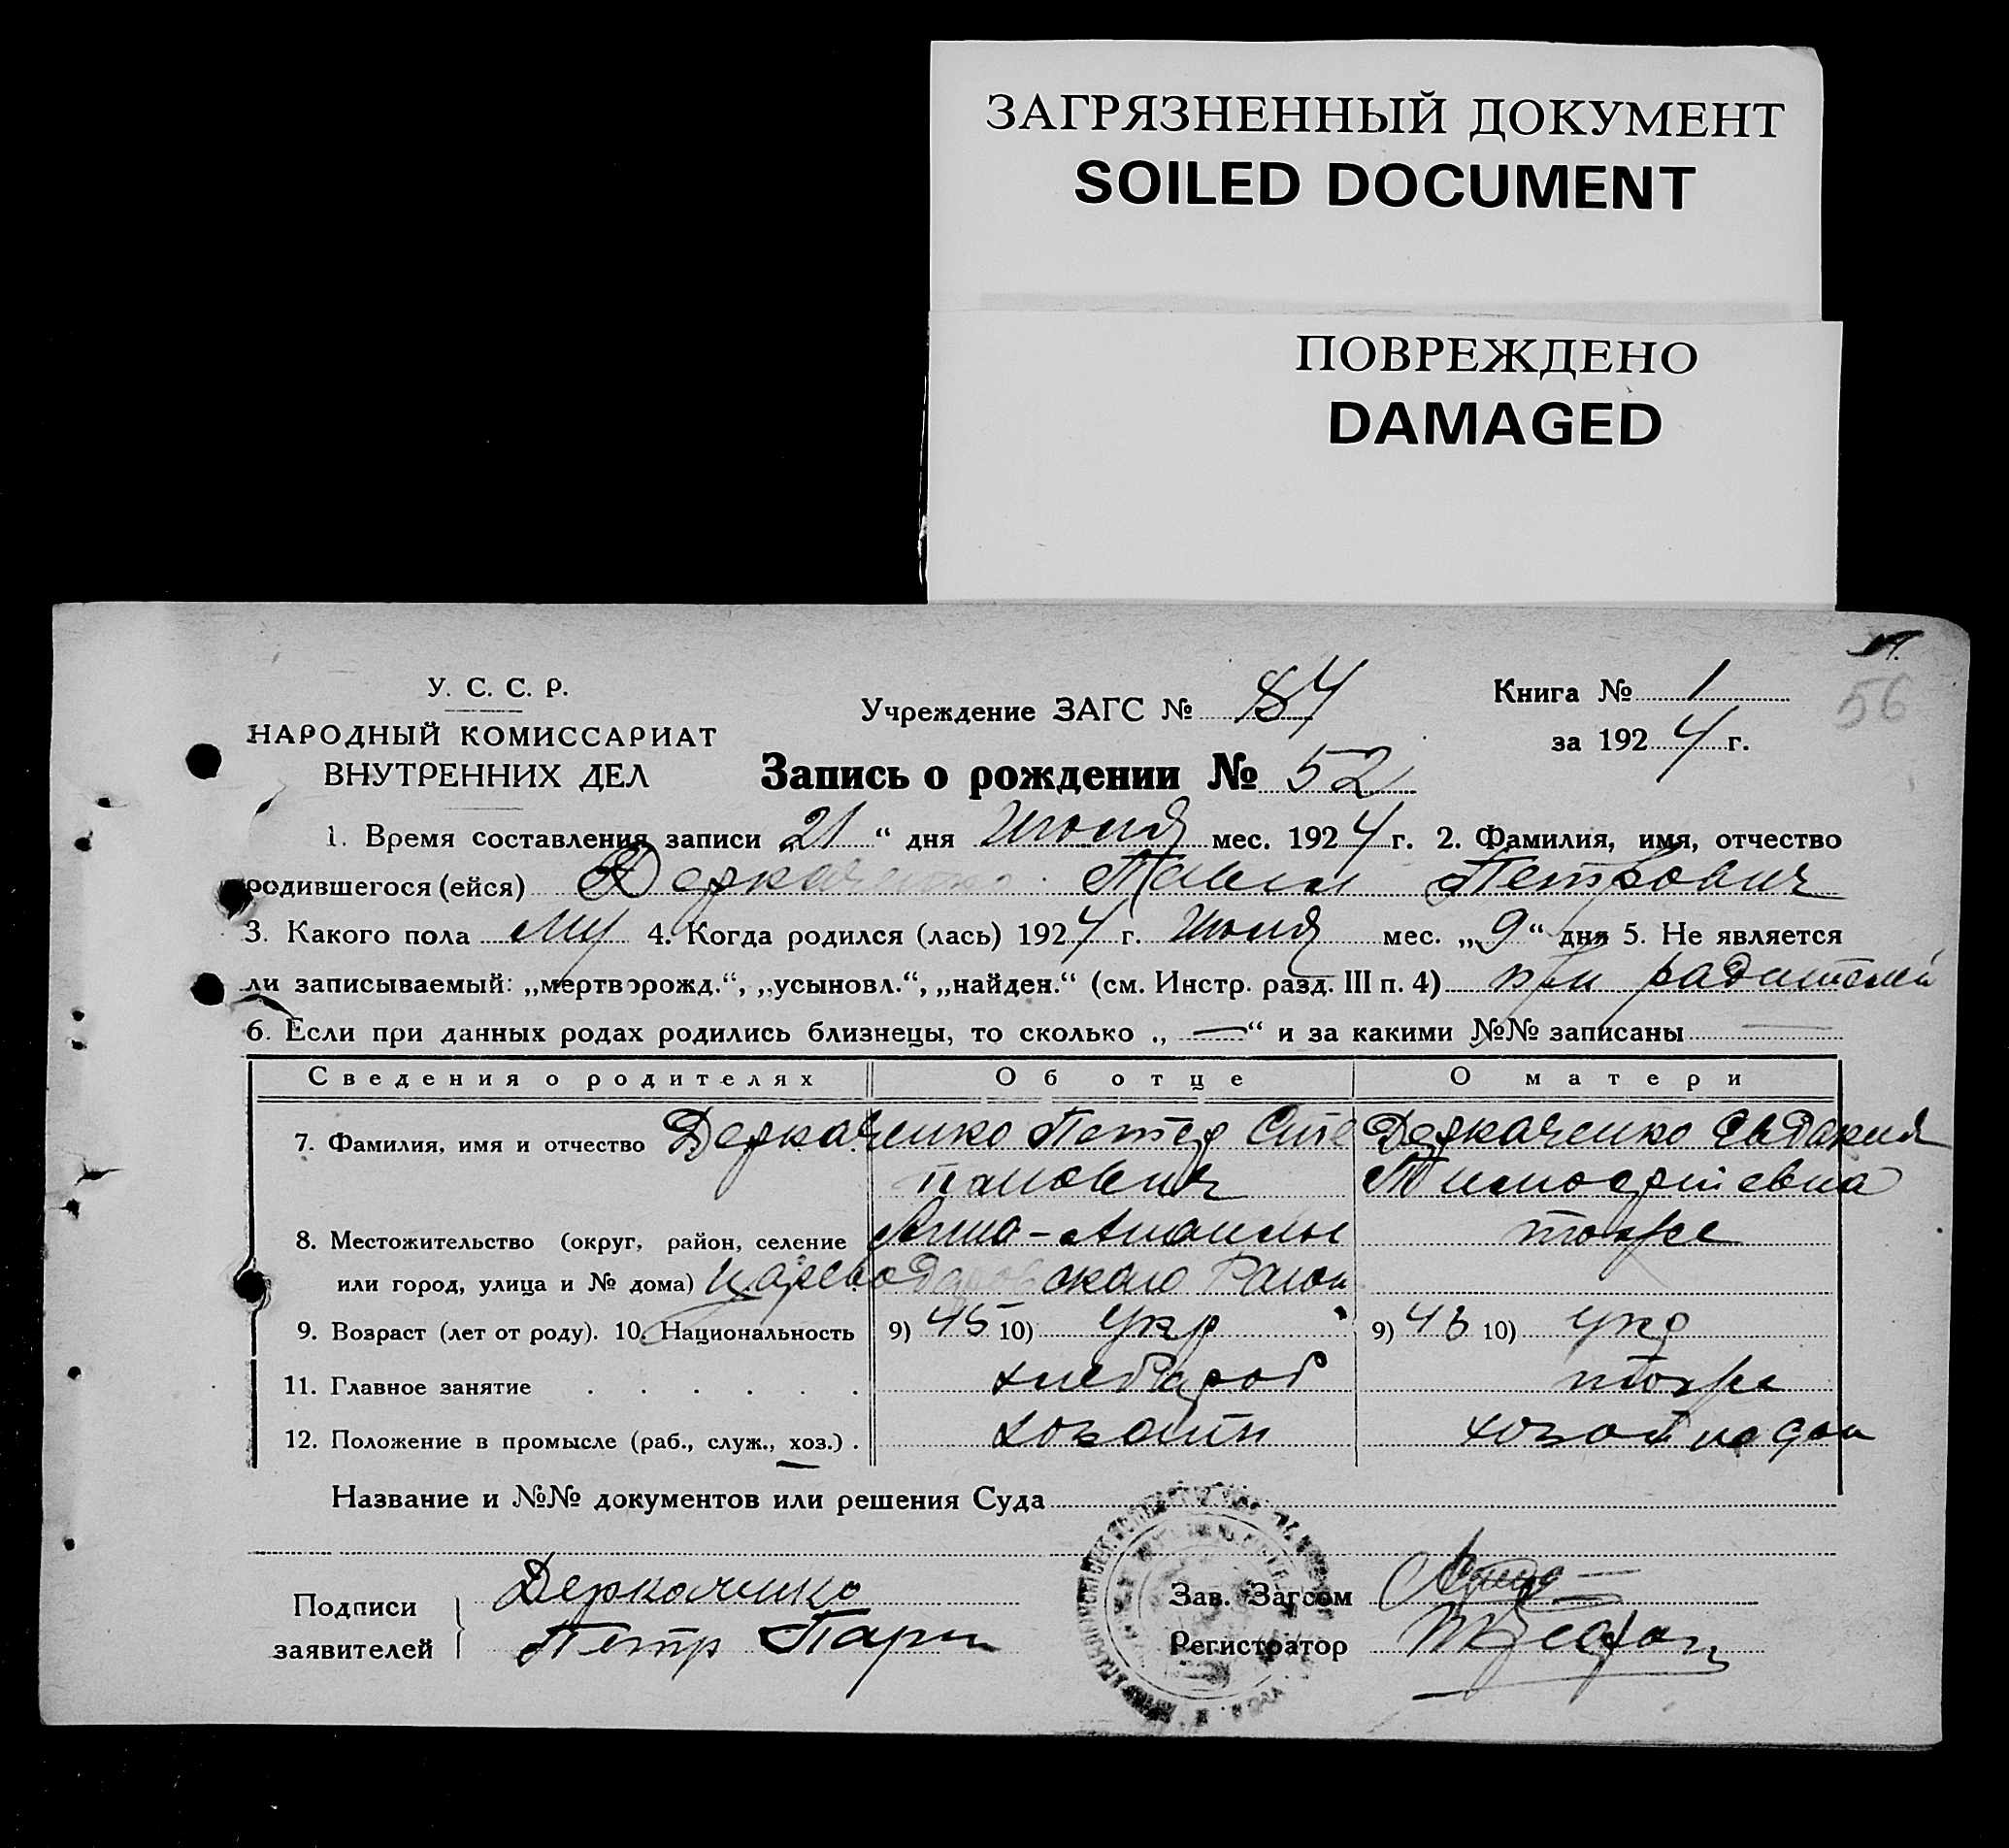 ЗАГРЯЗНЕННЫЙ ДОКУМЕНТ
SOILED DOCUMENT
ПОВРЕЖДЕНО
DAMAGED
56
У. С. С. Р.
НАРОДНЫЙ КОМИССАРИАТ
ВНУТРЕННИХ ДЕЛ
Учреждение ЗАГС № 84
Книга № 1
за 1924 г.
Запись о рождении № 52
1. Время составления записи „21“ дня Июля мес. 1924 г. 2. Фамилия, имя, отчество
родившегося (ейся) Деркаченко Павел Петрович
3. Какого пола Му 4. Когда родился (лась) 1924 г. Июля мес. „9“ дня 5. Не является
ли записываемый: „мертворожд.“, „усыновл.“, „найден.“ (см. Инстр. разд. III п. 4) при радителей
6. Если при данных родах родились близнецы, то сколько „—“ и за какими №№ записаны —
Сведения о родителях Об отце О матери
7. Фамилия, имя и отчество Деркаченко Петер Сте Деркаченко Евдакия
панович Тимофеевна
8. Местожительство (округ, район, селение тоже
или город, улица и № дома) Царево ского Раион
9. Возраст (лет от роду). 10. Национальность 9) 45 10) Укр 9) 43 10) Укр
11. Главное занятие . . . . . . хлебароб тоже
12. Положение в промысле (раб., служ., хоз.) .
Название и №№ документов или решения Суда
Подписи заявителей Деркаченко
Петр
Зав. Загсом
Регистратор